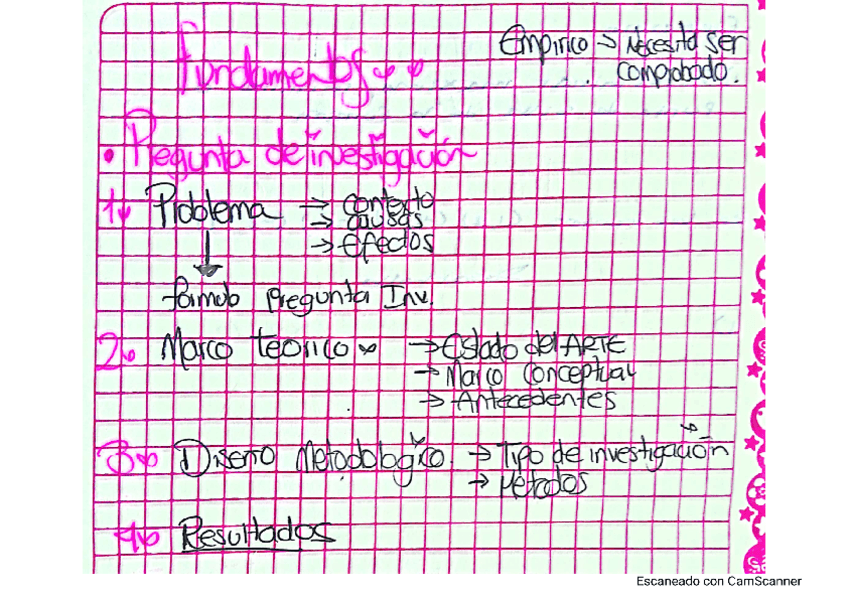 Fundamentos
Empirico → Necesita ser
comprobado.
• Pregunta de investigación
1. Problema → contexto
→ causas
→ Efectos
formulo pregunta Inv.
2. Marco teorico → Estado del ARTE
→ Marco conceptual
→ Antecedentes
3. Diseño Metodologico. → Tipo de investigación
→ Metodos
4. Resultados
Escaneado con CamScanner